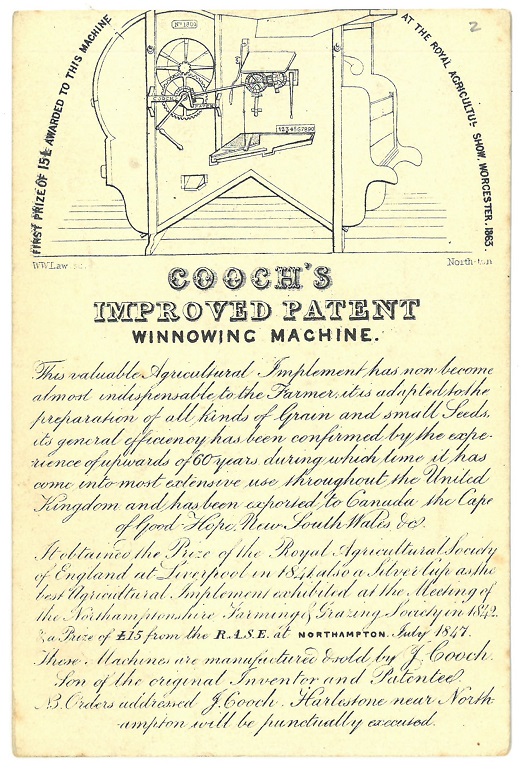 2
FIRST PRIZE OF 15£ AWARDED TO THIS MACHINE
AT THE ROYAL AGRICULTUL SHOW, WORCESTER. 1863.
No 1803
COOCH
PATENT
1 2 3 4 5 6 7 8 9 0
W.W. Law sc.
COOCH'S
IMPROVED PATENT
WINNOWING MACHINE.
This valuable Agricultural Implement has now become
almost indispensable to the Farmer, it is adapted to the
preparation of all kinds of Grain and small Seeds,
its general efficiency has been confirmed by the expe-
rience of upwards of 60 years during which time it has
come into most extensive use throughout the United
Kingdom and has been exported to Canada the Cape
of Good Hope, New South Wales &c.
It obtained the Prize of the Royal Agricultural Society
of England at Liverpool in 1841 also a Silver Cup as the
best Agricultural Implement exhibited at the Meeting of
the Northamptonshire Farming & Grazing Society in 1842.
& a Prize of £15 from the R.A.S.E. at NORTHAMPTON. July 1847.
These Machines are manufactured & sold by J. Cooch.
Son of the original Inventor and Patentee.
N.B. Orders addressed J. Cooch. Harlestone near North-
ampton will be punctually executed.